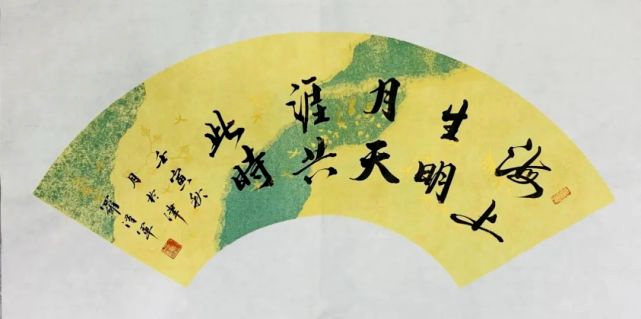 海上
生明
月天
涯共
此時
壬寅秋
月於津
羅 軍